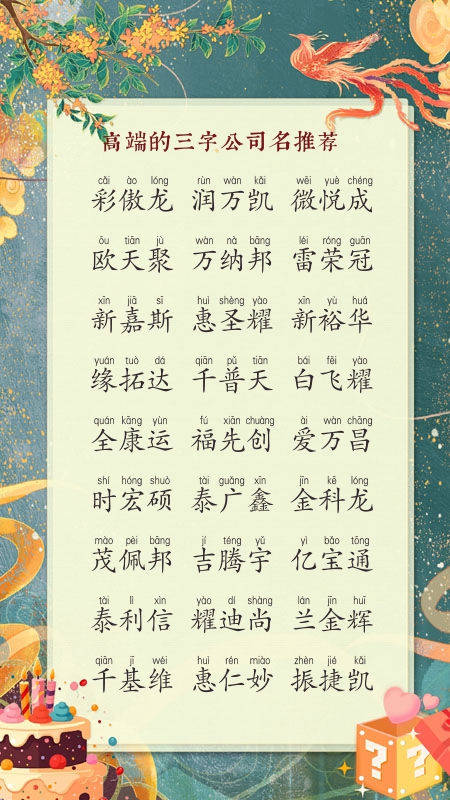 高端的三字公司名推荐
cǎi ào lóng rùn wàn kǎi wēi yuè chéng
彩傲龙 润万凯 微悦成
ōu tiān jù wàn nà bāng léi róng guān
欧天聚 万纳邦 雷荣冠
xīn jiā sī huì shèng yào xīn yù huá
新嘉斯 惠圣耀 新裕华
yuán tuò dá qiān pǔ tiān bái fēi yào
缘拓达 千普天 白飞耀
quán kāng yùn fú xiān chuàng ài wàn chāng
全康运 福先创 爱万昌
shí hóng shuò tài guǎng xīn jīn kē lóng
时宏硕 泰广鑫 金科龙
mào pèi bāng jí téng yǔ yì bǎo tōng
茂佩邦 吉腾宇 亿宝通
tài lì xìn yào dí shàng lán jīn huī
泰利信 耀迪尚 兰金辉
qiān jī wéi huì rén miào zhèn jié kǎi
千基维 惠仁妙 振捷凯
? ?